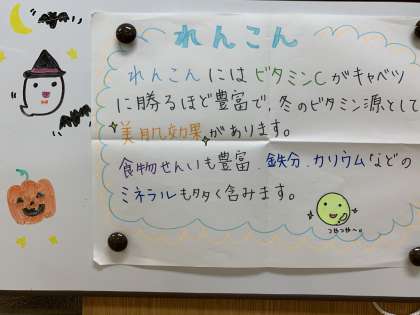 れんこん
れんこんにはビタミンCがキャベツ
に勝るほど豊富で、冬のビタミン源として
美肌効果があります。
食物せんいも豊富、鉄分、カリウムなどの
ミネラルも多く含みます。
つやつや〜。